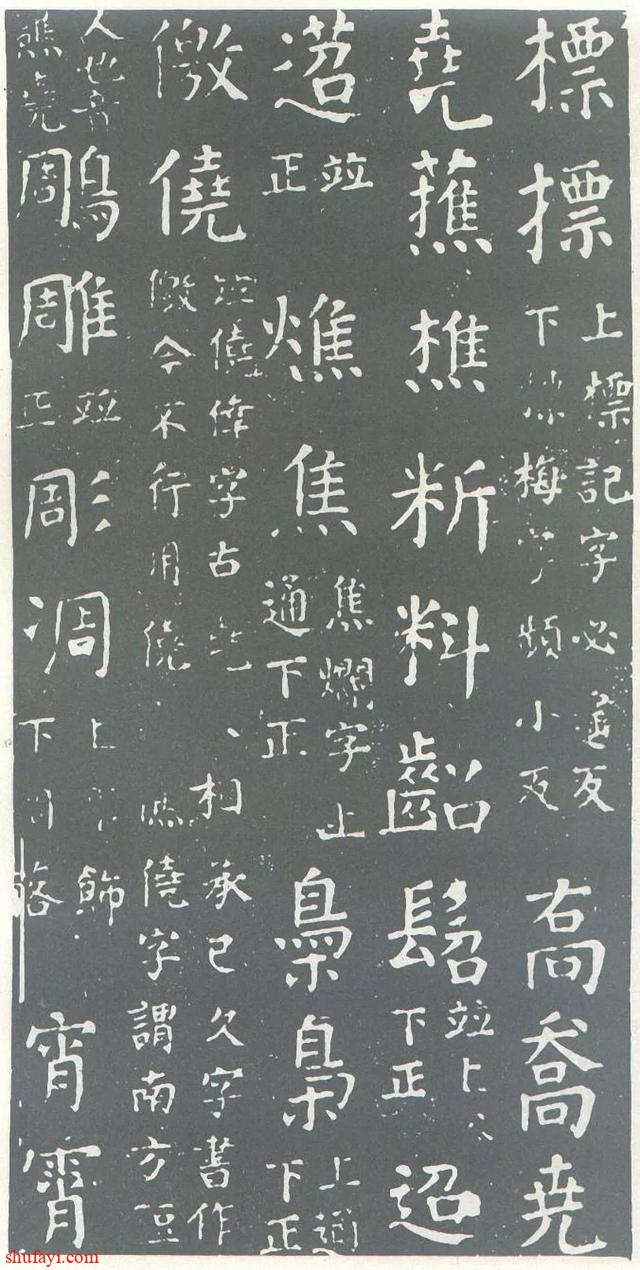 標摽上標記字必遙反下梅字頻小反喬喬尭
堯蕉樵斨料齠髫並上下正迢
迢並正燋焦焦爛字上通下正梟梟上通下正
儌僥並僥倖字古堯相承已久字書作儌今不行用僥僥字謂南方短
人也音譙堯鵰雕並正彫凋上飾下凋落宵霄
shufayi.com